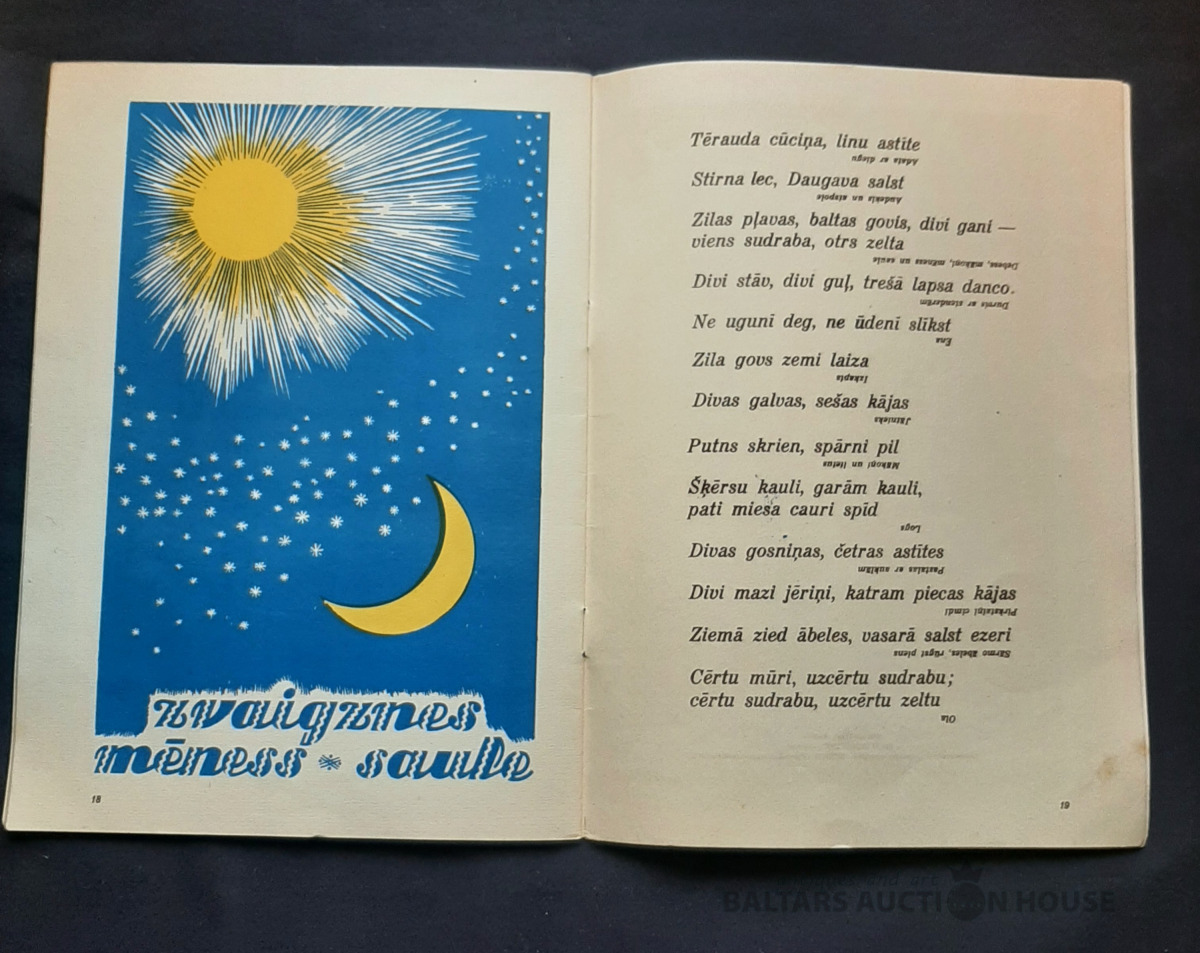 zvaigznes
mēness * saule
18
Tērauda cūciņa, linu astīte
Adata ar diegu
Stirna lec, Daugava salst
Audekls un atspole
Zilas pļavas, baltas govis, divi gani —
viens sudraba, otrs zelta
Debess, mākoņi, mēness un saule
Divi stāv, divi guļ, trešā lapsa danco.
Durvis ar stenderēm
Ne ugunī deg, ne ūdenī slīkst
Ēna
Zila govs zemi laiza
Izkapts
Divas galvas, sešas kājas
Jātnieks
Putns skrien, spārni pil
Mākoņi un lietus
Šķērsu kauli, garām kauli,
pati miesa cauri spīd
Logs
Divas gosniņas, četras astītes
Pastalas ar auklām
Divi mazi jēriņi, katram piecas kājas
Pirkstaiņi cimdi
Ziemā zied ābeles, vasarā salst ezeri
Sārmo ābeles, rūgst piens
Cērtu mūri, uzcērtu sudrabu;
cērtu sudrabu, uzcērtu zeltu
Ola
19
BALTARS AUCTION HOUSE